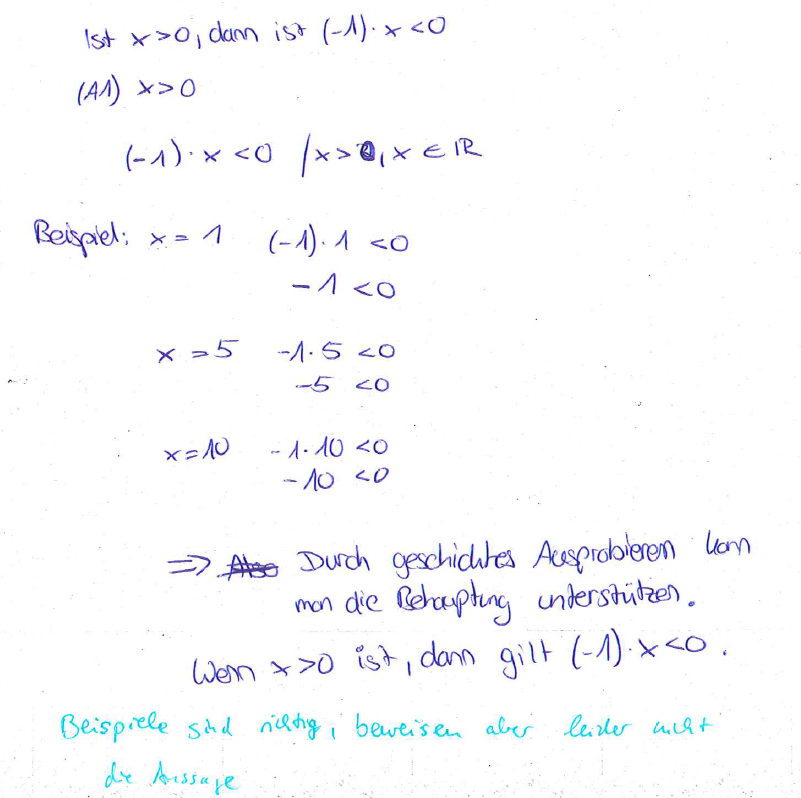 Ist x>0, dann ist (-1)·x<0
(A1) x>0
(-1)·x<0 /x>0, x ∈ ℝ
Beispiel: x=1 (-1)·1 <0
-1 <0
x=5 -1·5 <0
-5 <0
x=10 -1·10 <0
-10 <0
=> Also Durch geschicktes Ausprobieren kann
man die Behauptung unterstützen.
Wenn x>0 ist, dann gilt (-1)·x<0.
Beispiele sind richtig, beweisen aber leider nicht
die Aussage